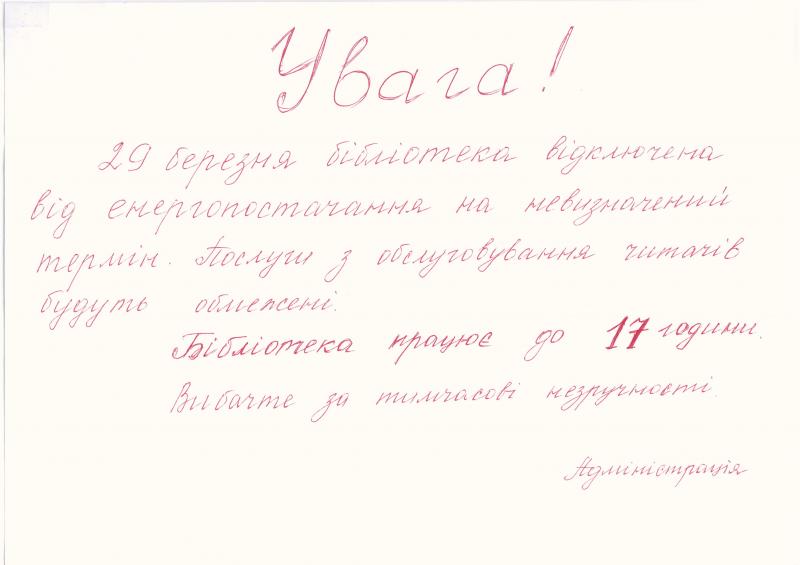 Увага!
29 березня бібліотека відключена
від енергопостачання на невизначений
термін. Послуги з обслуговування читачів
будуть обмежені.
Бібліотека працює до 17 години.
Вибачте за тимчасові незручності.
Адміністрація